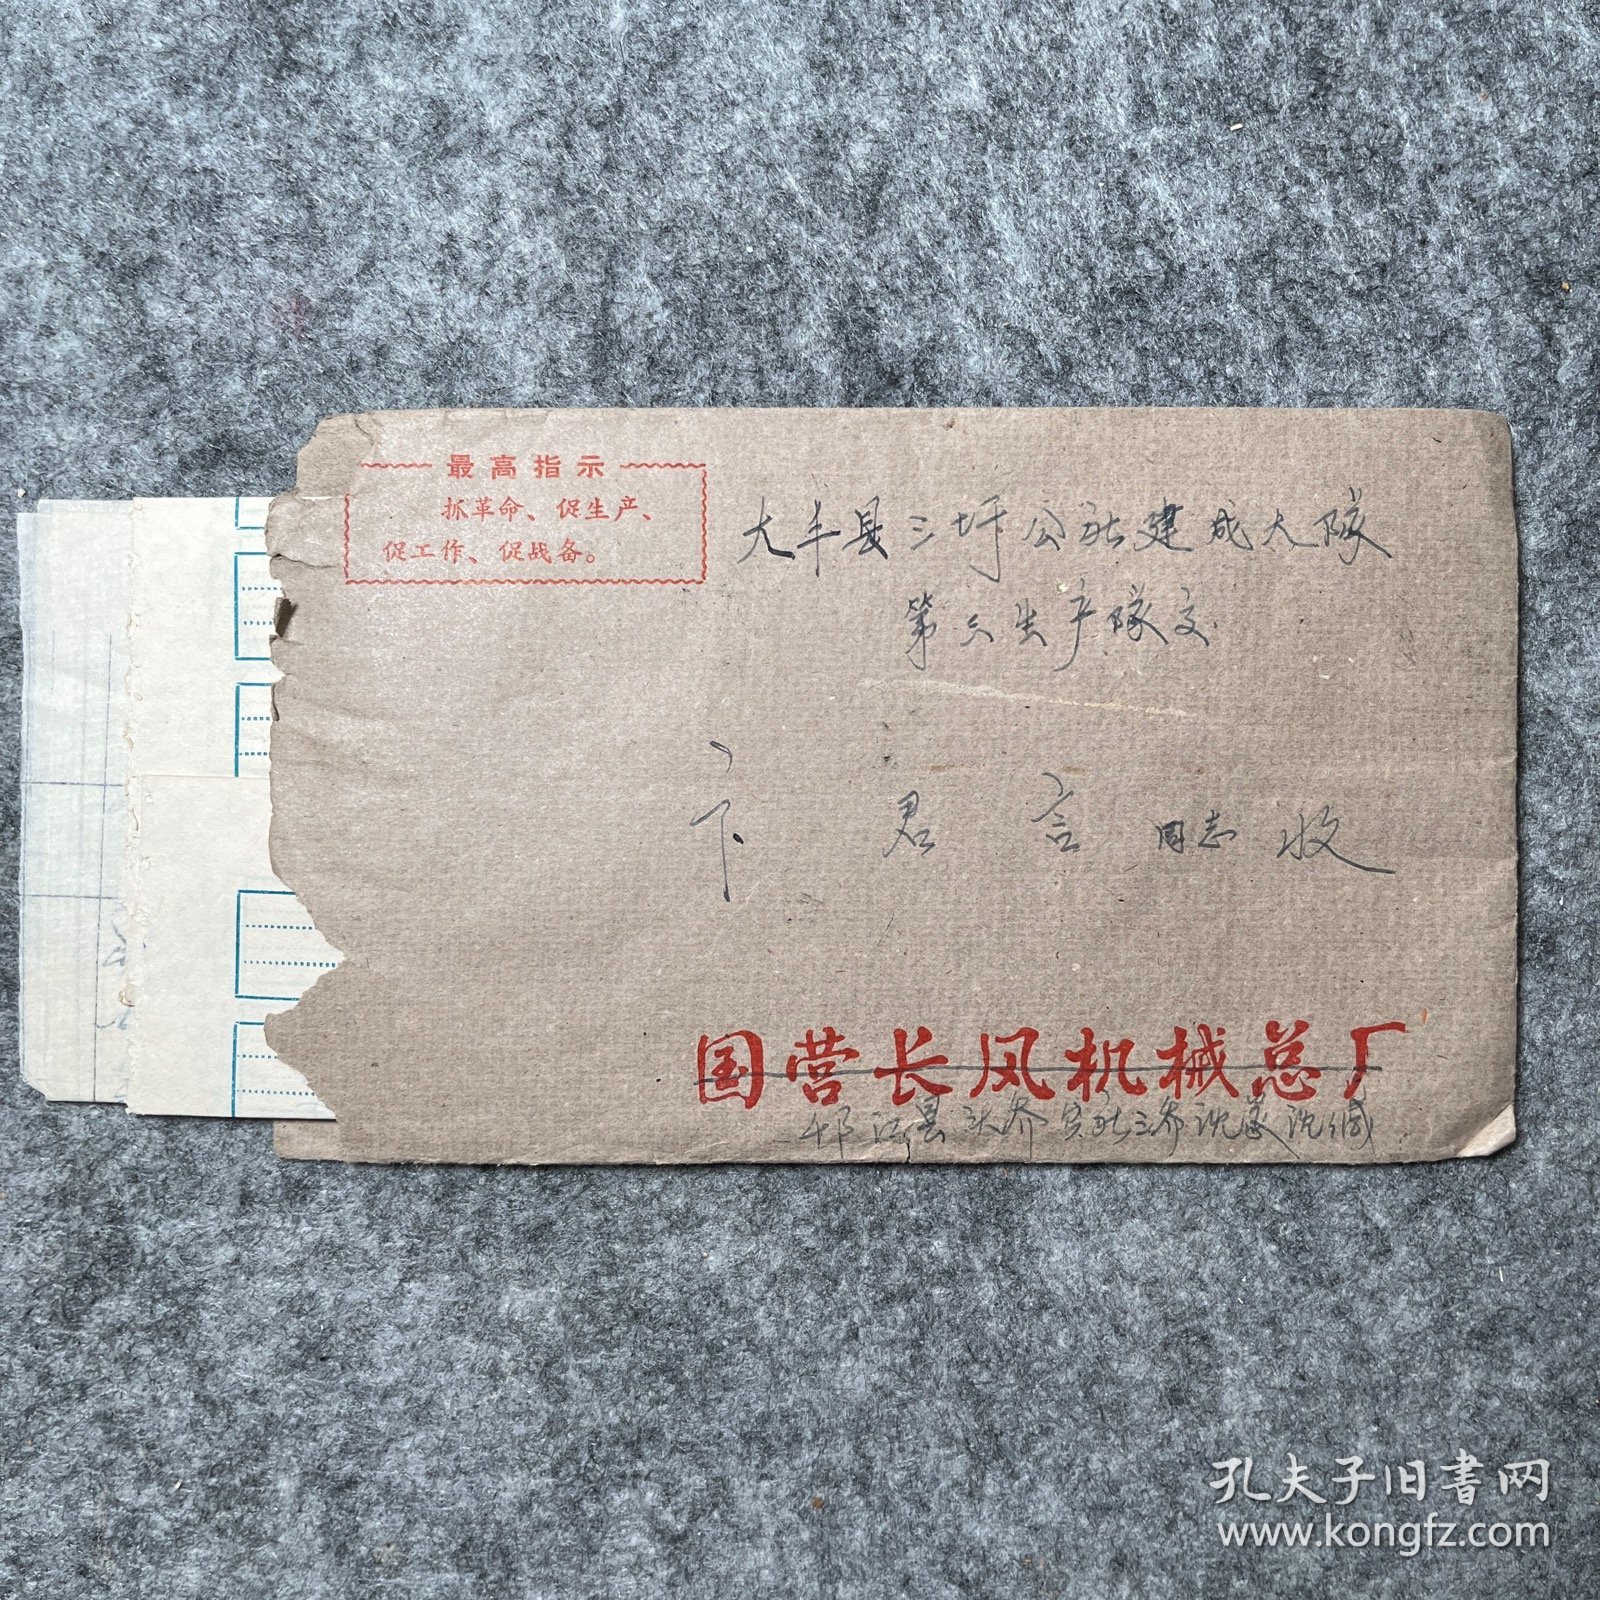 最高指示
抓革命、促生产、
促工作、促战备。
大丰县三圩公社建成大队
第六生产队交
卞君言同志收
国营长风机械总厂
邗江县头桥公社三桥沈缄
孔夫子旧书网
www.kongfz.com